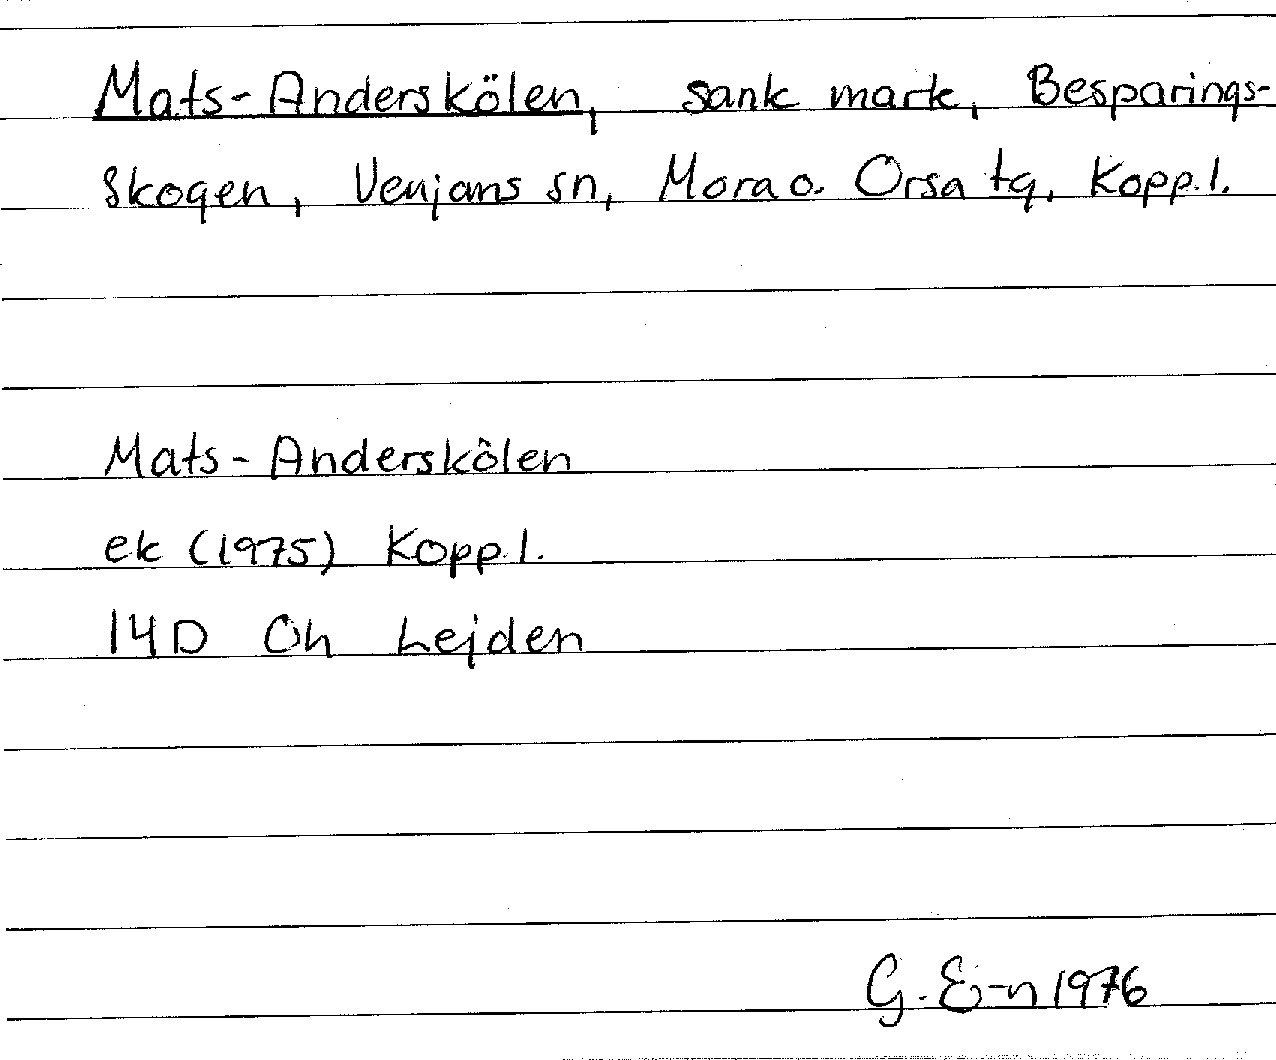 Mats-Anderskölen, sank mark, Besparings-
skogen, Venjans sn, Mora o. Orsa tg, Kopp.l.
Mats-Anderskölen
ek (1975) Kopp.l.
14D 0h Lejden
G. E-n 1976